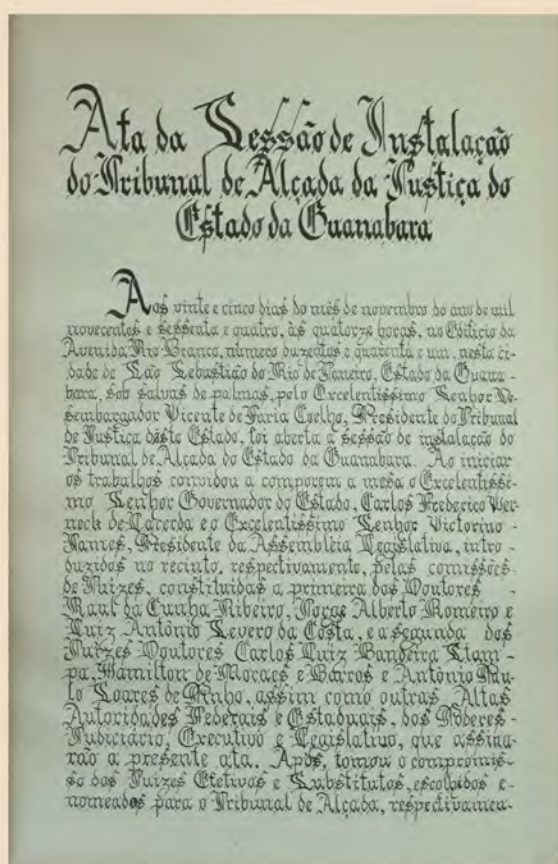 Ata da Sessão de Instalação
do Tribunal de Alçada da Justiça do
Estado da Guanabara
Aos vinte e cinco dias do mês de novembro do ano de mil
novecentos e sessenta e quatro, às quatorze horas, no Edifício da
Avenida Rio Branco, número duzentos e quarenta e um, nesta ci-
dade de São Sebastião do Rio de Janeiro, Estado da Guana-
bara, sob salvas de palmas, pelo Excelentíssimo Senhor De-
sembargador Vicente de Faria Coelho, Presidente do Tribunal
de Justiça dêste Estado, foi aberta a sessão de instalação do
Tribunal de Alçada do Estado da Guanabara. Ao iniciar
os trabalhos convidou a comporem a mesa o Excelentíssi-
mo Senhor Governador do Estado, Carlos Frederico Wer-
neck de Lacerda e o Excelentíssimo Senhor Victorino
James, Presidente da Assembléia Legislativa, intro-
duzidos no recinto, respectivamente, pelas comissões
de Juizes, constituidas a primeira dos Doutores -
Raul da Cunha Ribeiro, Jorge Alberto Romeiro e
Luiz Antônio Severo da Costa, e a segunda dos
Juizes Doutores Carlos Luiz Bandeira Stam-
pa, Hamilton de Moraes e Barros e Antônio Pau-
lo Soares de Pinho, assim como outras Altas
Autoridades Federais e Estaduais, dos Poderes -
Judiciário, Executivo e Legislativo, que assina-
rão a presente ata. Após, tomou o compromis-
so dos Juizes Efetivos e Substitutos, escolhidos e -
nomeados para o Tribunal de Alçada, respectivamen-